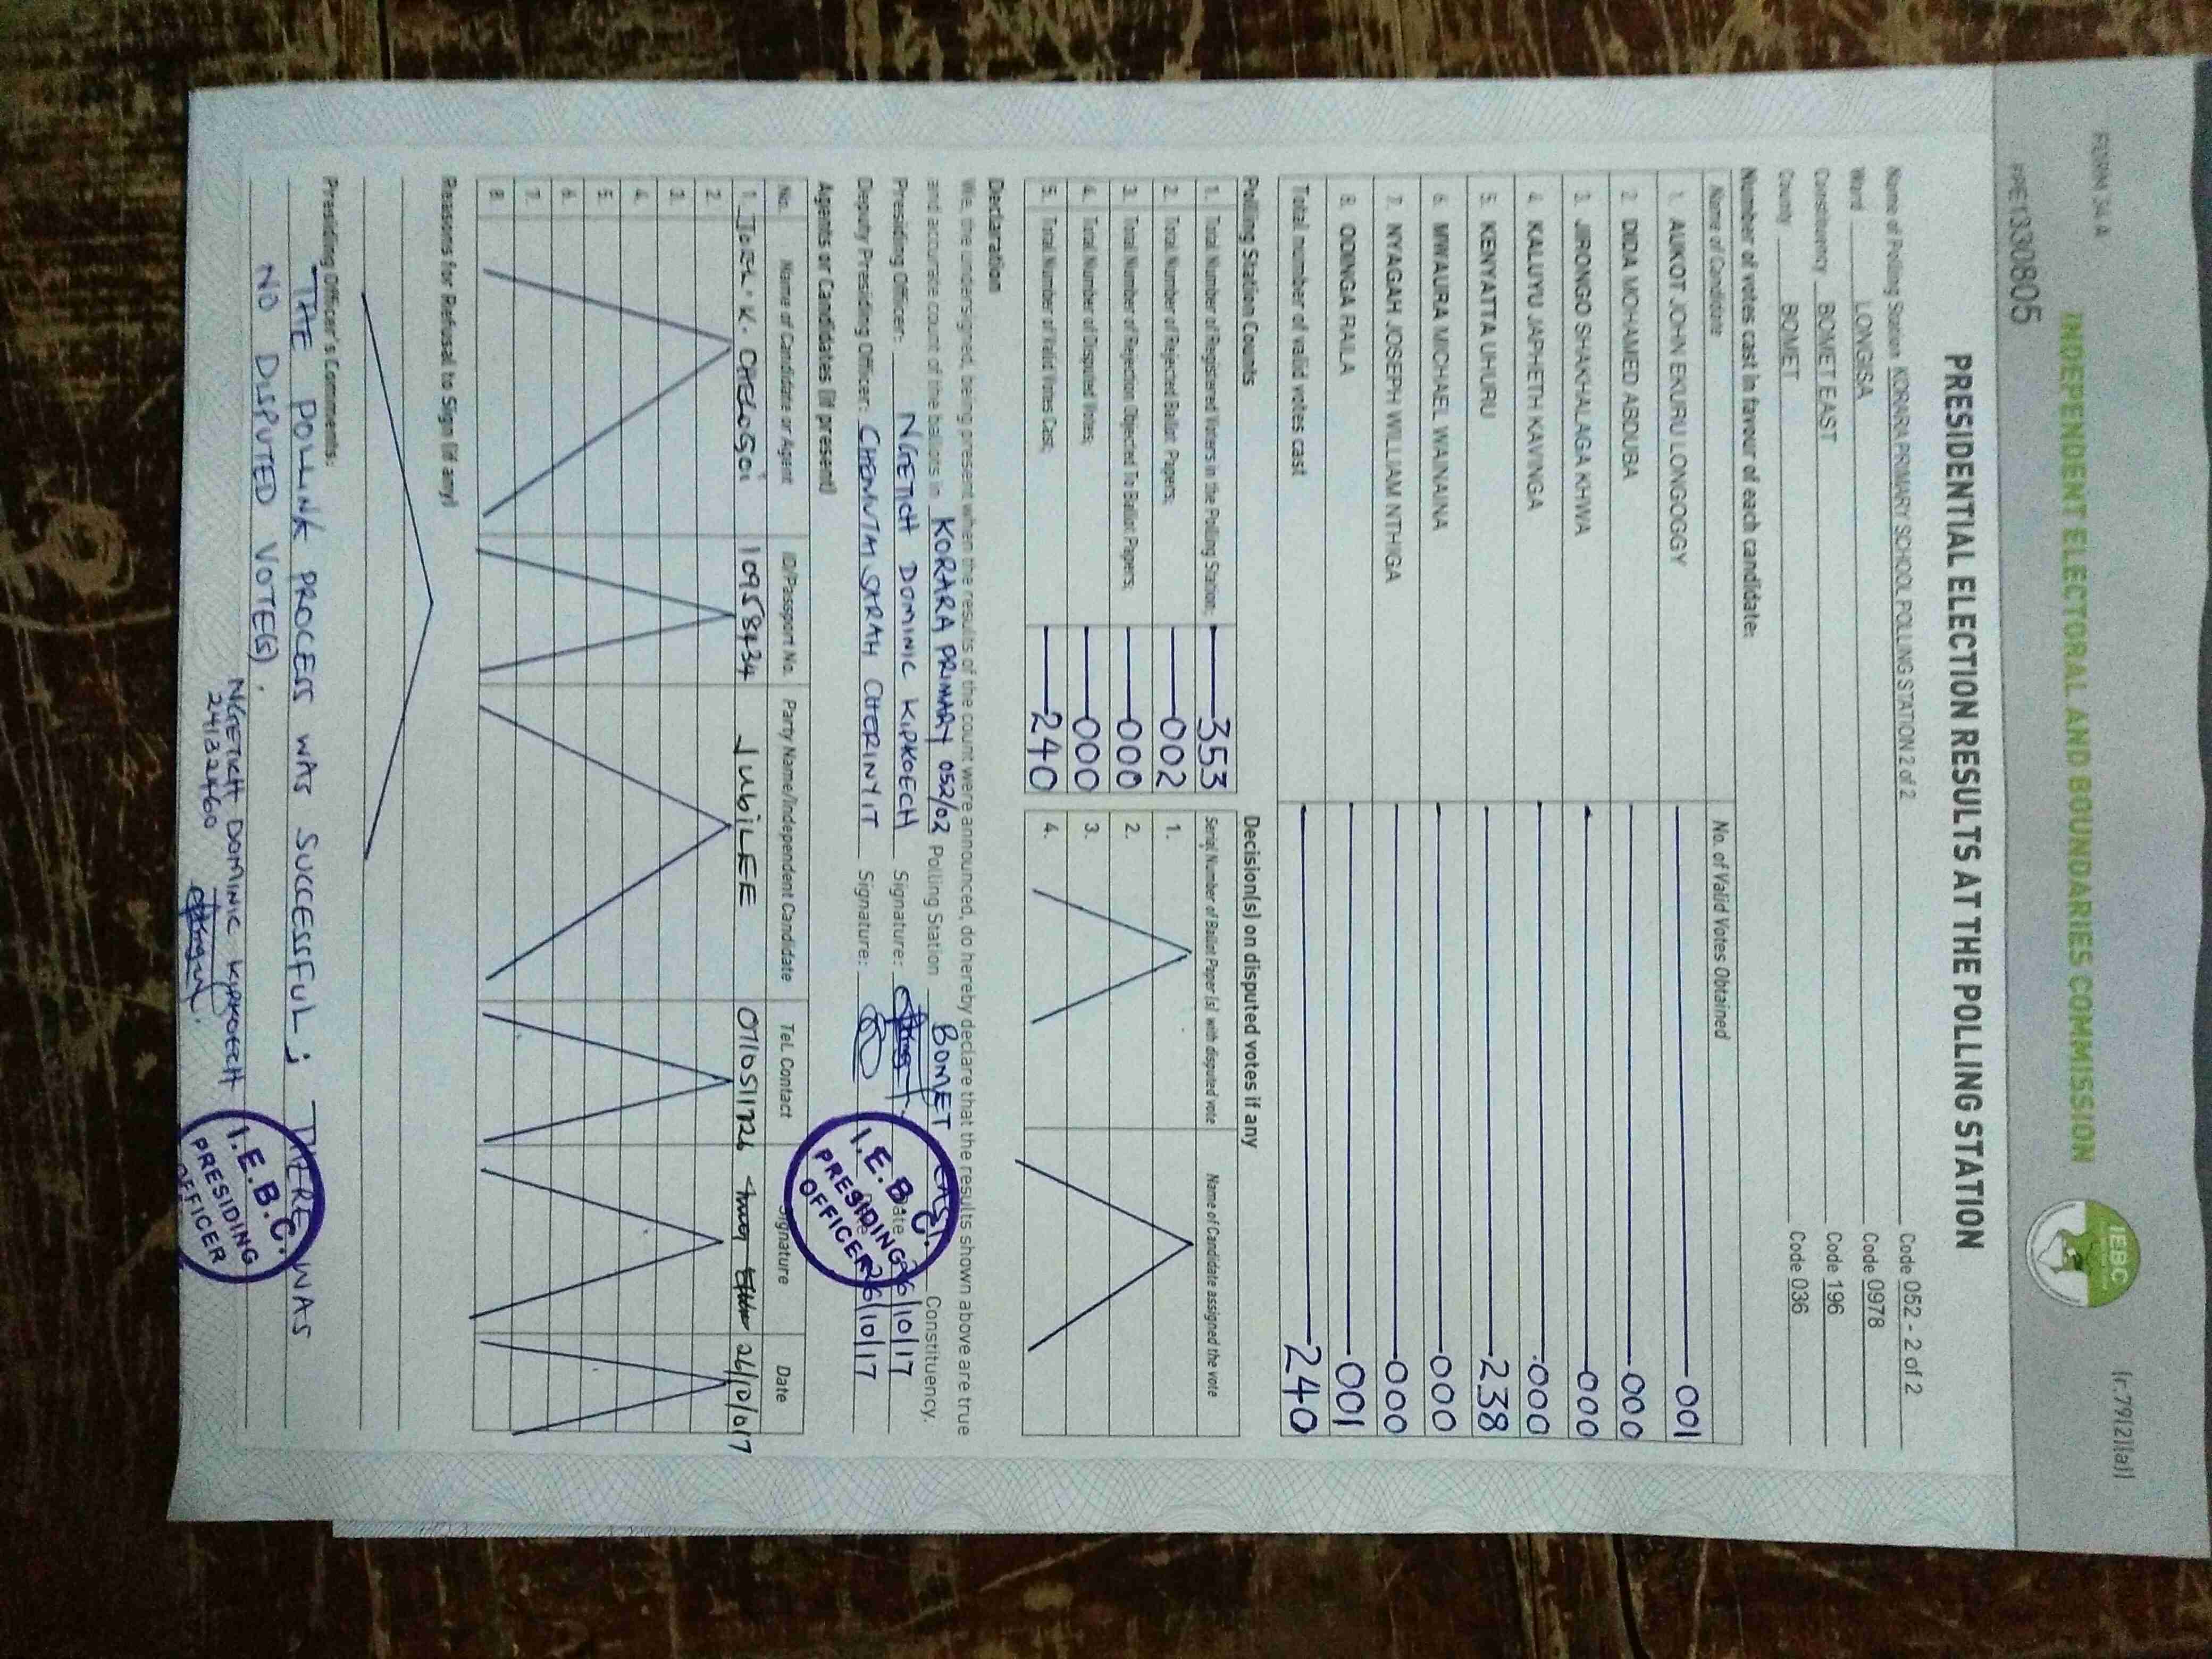 FORM 34 A
(r.79(2)(a))
INDEPENDENT ELECTORAL AND BOUNDARIES COMMISSION
IEBC
PPE1330805
PRESIDENTIAL ELECTION RESULTS AT THE POLLING STATION
Name of Polling Station KORARA PRIMARY SCHOOL POLLING STATION 2 of 2 Code 052 - 2 of 2
Ward LONGISA Code 0978
Constituency BOMET EAST Code 196
County BOMET Code 036
Number of votes cast in favour of each candidate:
Name of Candidate No. of Valid Votes Obtained
1. AUKOT JOHN EKURU LONGOGGY 001
2. DIDA MOHAMED ABDUBA 000
3. JIRONGO SHAKHALAGA KHWA 000
4. KALUYU JAPHETH KAVINGA 000
5. KENYATTA UHURU 238
6. MWAURA MICHAEL WAINAINA 000
7. NYAGAH JOSEPH WILLIAM NTHIGA 000
8. ODINGA RAILA 001
Total number of valid votes cast 240
Polling Station Counts
1. Total Number of Registered Voters in the Polling Station; 353
2. Total Number of Rejected Ballot Papers; 002
3. Total Number of Rejection Objected To Ballot Papers; 000
4. Total Number of Disputed Votes; 000
5. Total Number of Valid Votes Cast; 240
Decision(s) on disputed votes if any
Serial Number of Ballot Paper (s) with disputed vote Name of Candidate assigned the vote
1.
2.
3.
4.
Declaration
We, the undersigned, being present when the results of the count were announced, do hereby declare that the results shown above are true
and accurate count of the ballots in KORARA PRIMARY 052/02 Polling Station BOMET EAST Constituency.
Presiding Officer: NGETICH DOMINIC KIPKOECH Signature: Date 26/10/17
Deputy Presiding Officer: SARAH CHERINYIT Signature: 26/10/17
I.E.B.C.
PRESIDING
OFFICER
Agents or Candidates (if present)
No. Name of Candidate or Agent ID/Passport No. Party Name/Independent Candidate Tel. Contact Signature Date
1. JOEL K. JUBILEE
2.
3.
4.
5.
6.
7.
8.
Reasons for Refusal to Sign (if any)
Presiding Officer's Comments:
THE POLLINK PROCESS WAS SUCCESSFUL; THERE WAS
NO DISPUTED VOTE(S).
NGETICH DOMINIC KIPKOECH
24132460
I.E.B.C.
PRESIDING
OFFICER